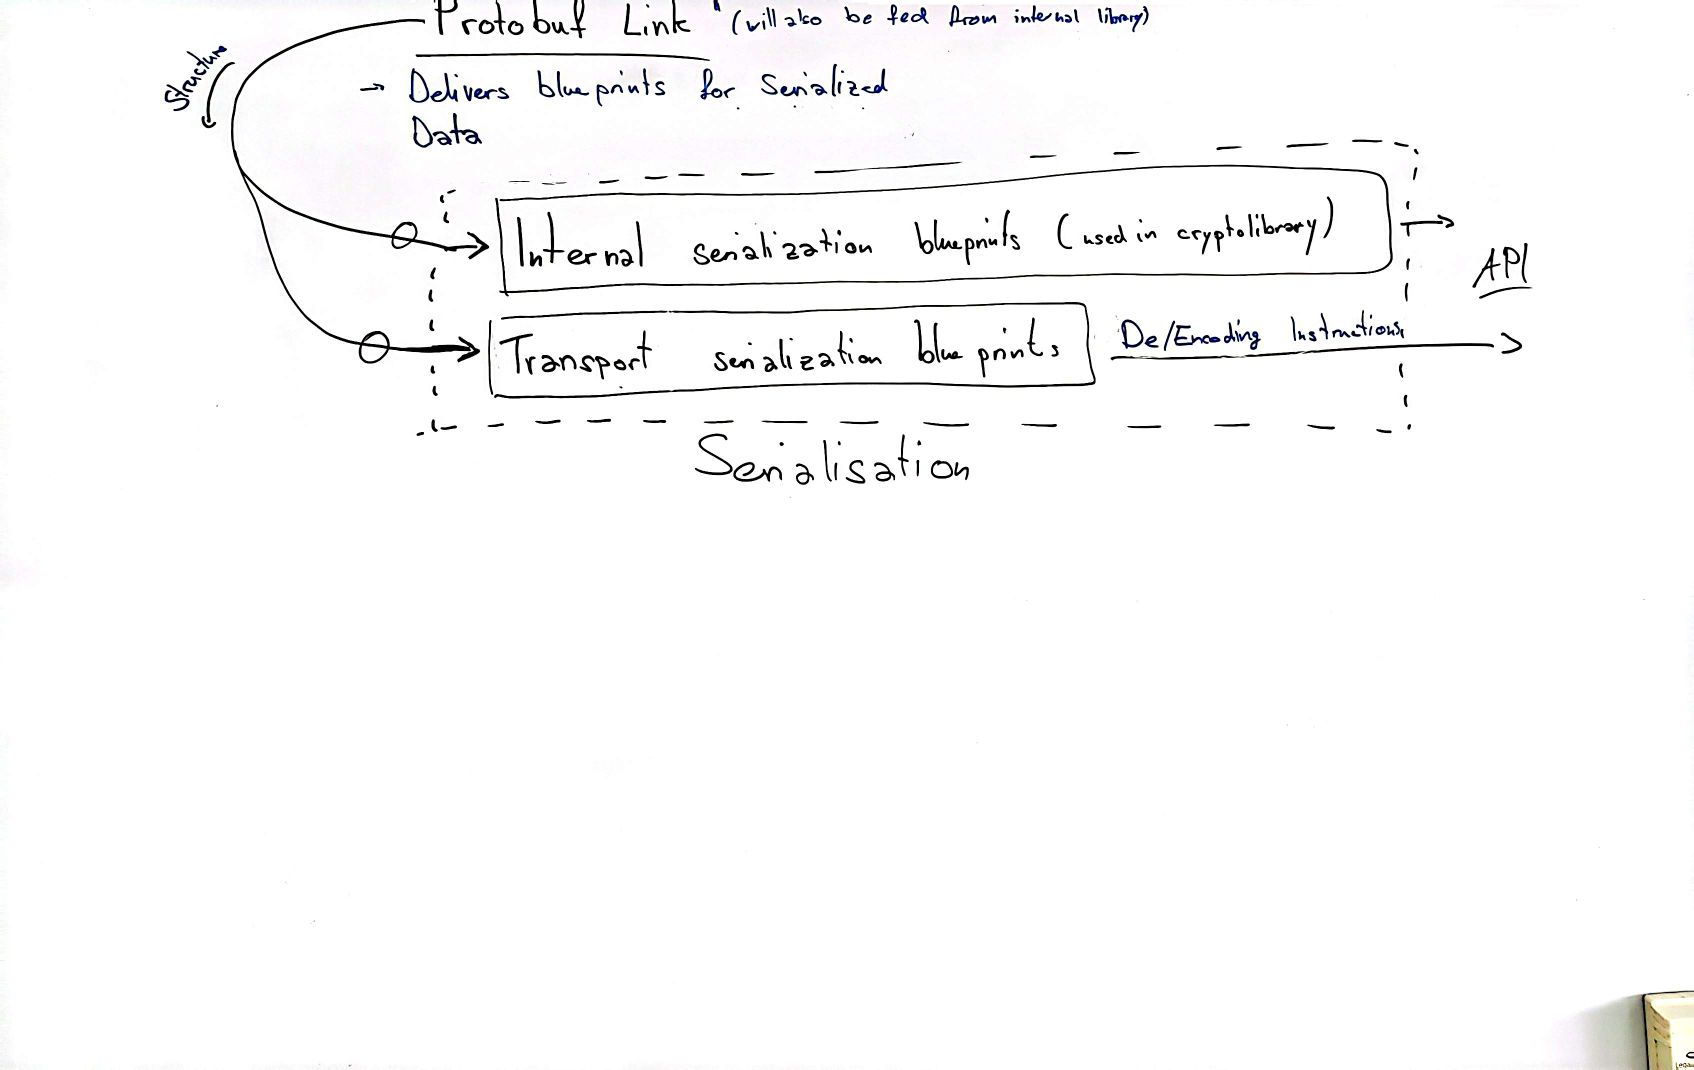 Protobuf Link (will also be fed from internal library)
Structure
→ Delivers blueprints for Serialized
Data
Internal serialization blueprints (used in cryptolibrary)
API
Transport serialization blueprints
De/Encoding Instructions
Serialisation